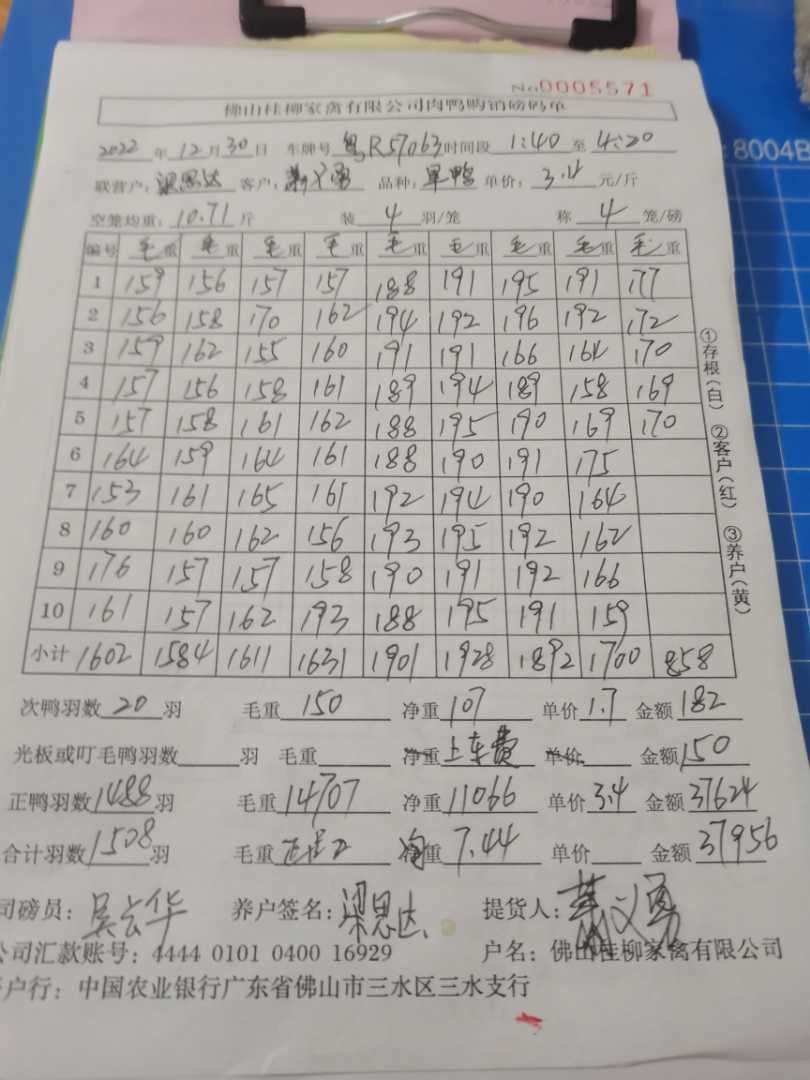 No 0005571
佛山桂柳家禽有限公司肉鸭购销磅码单
2022 年 12 月 30 日 车牌号 粤R57063 时间段 1:40 至 4:20
联营户: 梁思达 客户: 萧义勇 品种: 单鸭 单价: 3.4 元/斤
空笼均重: 10.71 斤 装 4 羽/笼 称 4 笼/磅
编号 毛重 毛重 毛重 毛重 毛重 毛重 毛重 毛重 毛重
1 159 156 157 157 188 191 195 191 177
2 156 158 170 162 194 192 196 192 172
3 159 162 155 160 191 191 166 164 170
4 157 156 158 161 189 194 189 158 169
5 157 158 161 162 188 195 190 169 170
6 164 159 164 161 188 190 191 175
7 153 161 165 161 192 194 190 164
8 160 160 162 156 193 195 192 162
9 176 157 157 158 190 191 192 166
10 161 157 162 193 188 195 191 159
小计 1602 1584 1611 1631 1901 1928 1892 1700 858
次鸭羽数 20 羽 毛重 150 净重 107 单价 1.7 金额 182
光板或叮毛鸭羽数 羽 毛重 净重 上车费 单价 金额 150
正鸭羽数 1488 羽 毛重 14707 净重 11066 单价 3.4 金额 37624
合计羽数 1508 羽 毛重 净重 7.44 单价 金额 37956
司磅员: 吴云华 养户签名: 梁思达 提货人: 萧义勇
公司汇款账号: 4444 0101 0400 16929 户名: 佛山桂柳家禽有限公司
户行: 中国农业银行广东省佛山市三水区三水支行
①存根(白) ②客户(红) ③养户(黄)
8004B